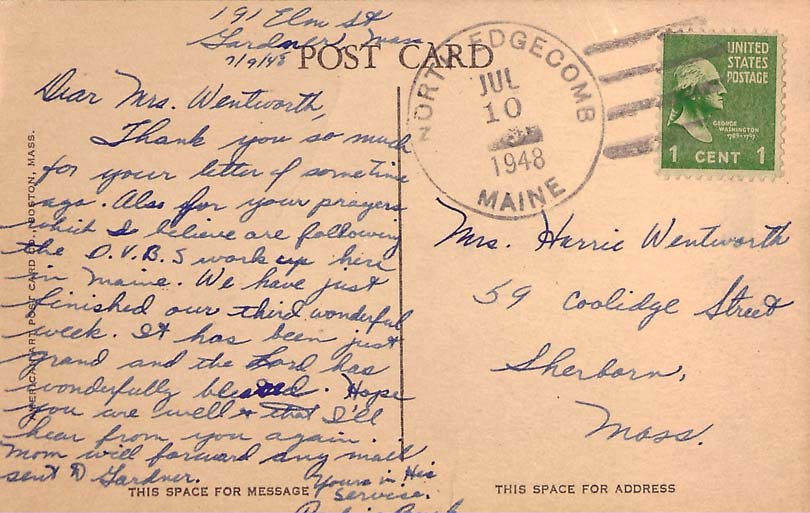 191 Elm St
Gardner, Mass
7/9/48
POST CARD
Dear Mrs. Wentworth,
Thank you so much
for your letter of sometime
ago. Also for your prayers
which I believe are following
the D.V.B.S work up here
in Maine. We have just
finished our third wonderful
week. It has been just
grand and the Lord has
wonderfully blessed. Hope
you are well & that I'll
hear from you again.
Mom will forward any mail
sent to Gardner.
Yours in His
Service.
THIS SPACE FOR MESSAGE
AMERICAN ART POST CARD CO., BOSTON, MASS.
NORTH EDGECOMB
JUL
10
1948
MAINE
UNITED
STATES
POSTAGE
GEORGE
WASHINGTON
1789-1797
1 CENT 1
Mrs. Harrie Wentworth
59 Coolidge Street
Sherborn,
Mass.
THIS SPACE FOR ADDRESS